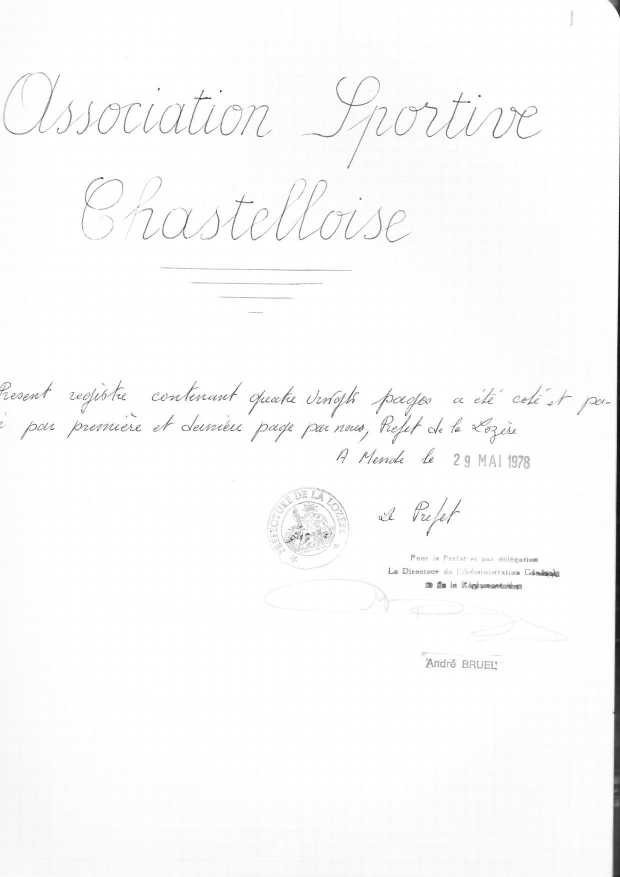 1
Association Sportive
Chastelloise
Présent registre contenant quatre vingts pages a été coté et pa-
é par première et dernière page par nous, Préfet de la Lozère
A Mende le 29 MAI 1978
PREFECTURE DE LA LOZERE
Le Préfet
Pour le Préfet et par délégation
Le Directeur de l'Administration Générale
et de la Réglementation
André BRUEL